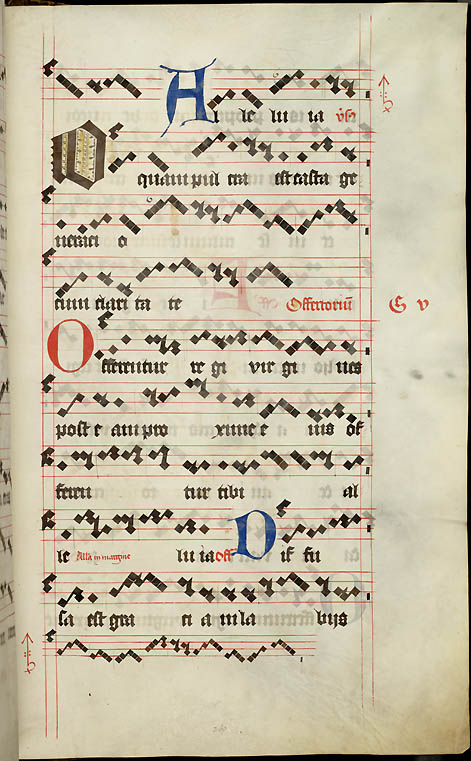 Alle lu ia
O quam pul cra est casta ge
neraci o
cum clari ta te Offertorium
Offerentur re gi vir gi nes
post e am pro xime e ius of
feren tur tibi al
le Alla in margine lu ia off Dif fu
sa est gra ci a in la bijs